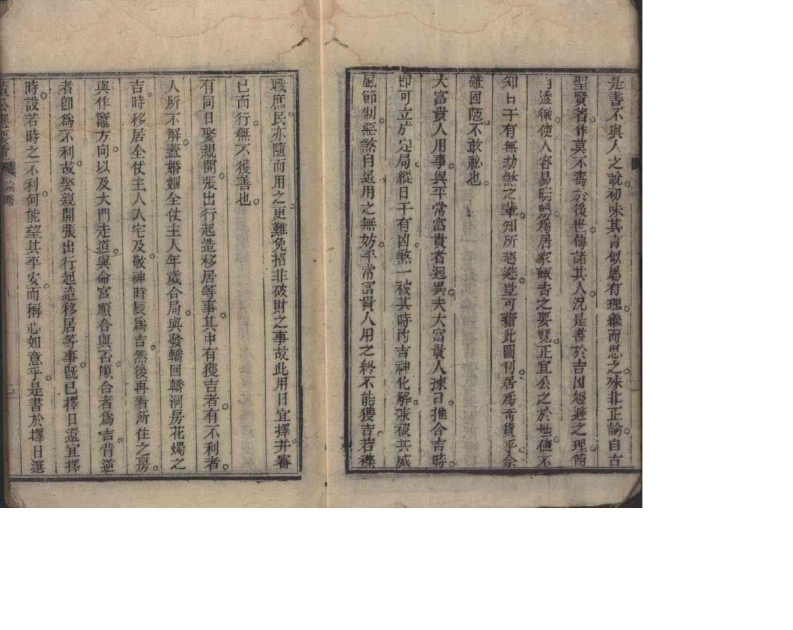 是書不與人之說初味其言似屬有理繼而思之殊非正論自古
聖賢著作莫不壽於後世傳諸其人況是書於吉凶趨避之理簡
達徹使人容易明曉為居家諏吉之要覽正宜公之於世使不
知日干有無劫煞之輩知所趨避豈可藉此圖刊居為奇貨乎余
雖固陋不敢祕也
大富貴人用事與平常富貴者迥異夫大富貴人揀日推合吉時
即可立於定局縱日干有凶煞一被其時內吉神化解張複其威
風節制惡煞自退用之無妨平常富貴人用之終不能獲吉若襍
職庶民亦隨而用之更難免招非破財之事故此用日宜擇并審
已而行無不獲善也
有同日娶親開張出行起造移居等事其中有獲吉者有不利者
人所不解蓋婚姻全仗主人年歲合局與發轎回轎洞房花燭之
吉時移居全仗主人入宅及敬神時辰為吉然後再看所住之房
與作竈方向以及大門走道與命宮順合與否順合者為吉背逆
者即為不利故娶親開張出行起造移居等事既已擇日還宜擇
時設若時之不利何能望其平安而稱心如意乎是書於擇日選